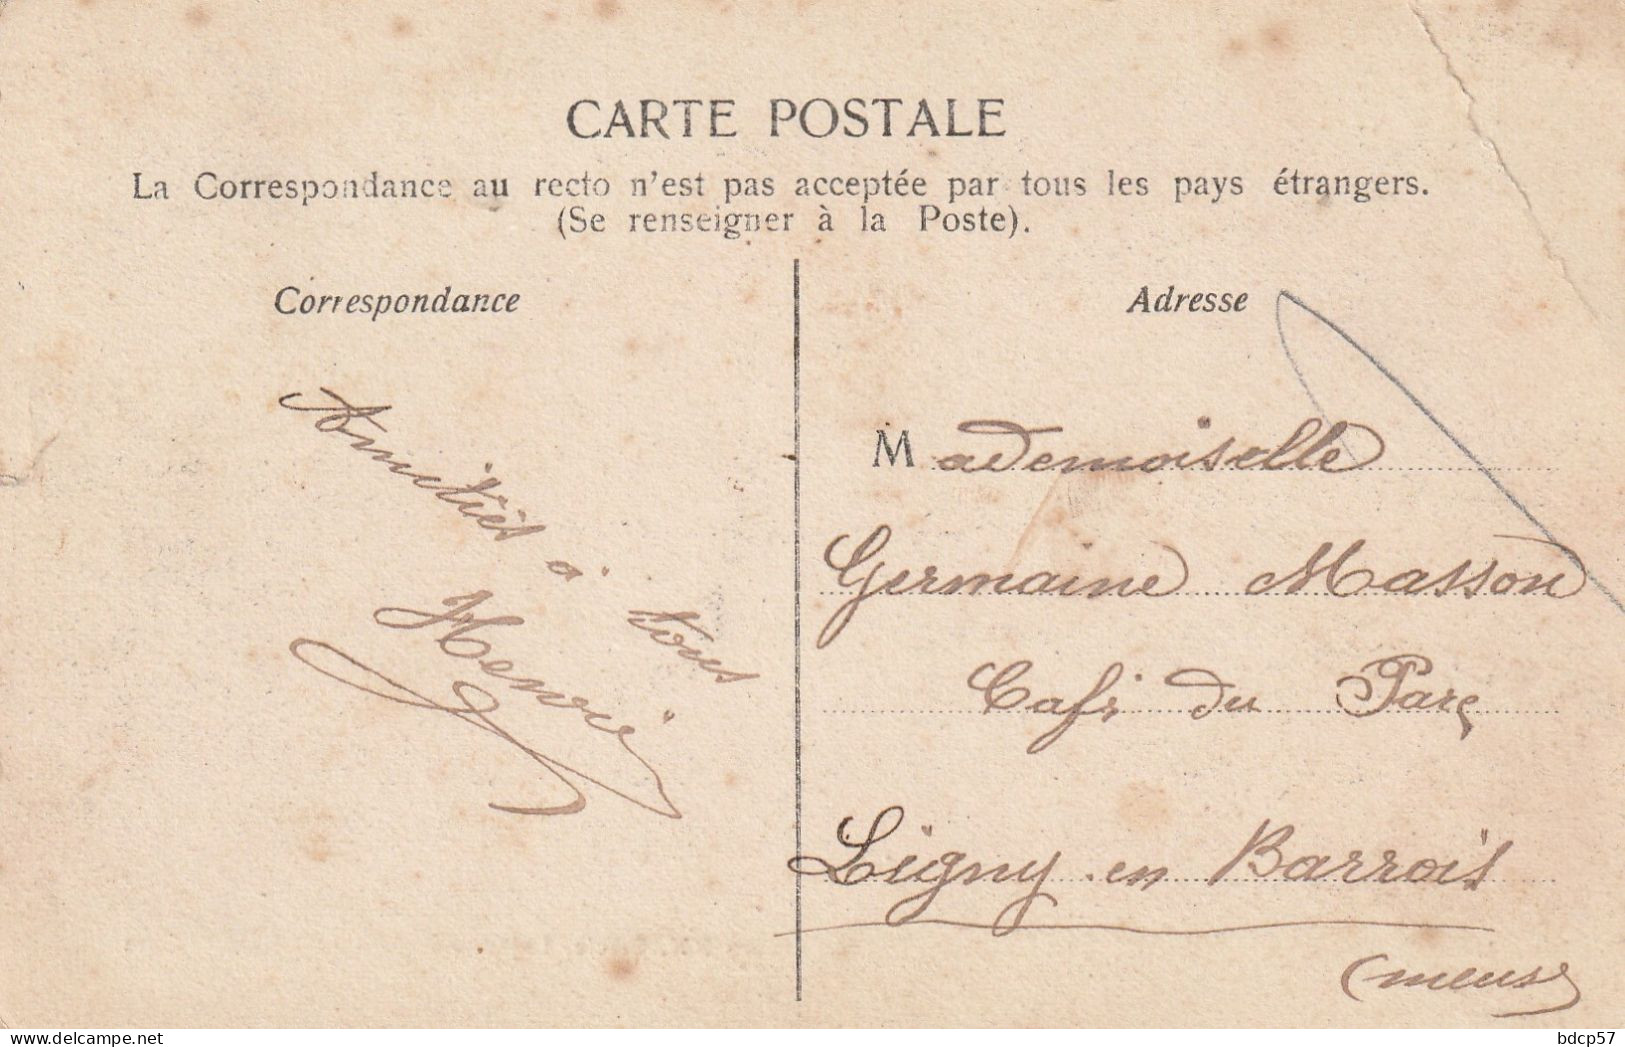 CARTE POSTALE
La Correspondance au recto n'est pas acceptée par tous les pays étrangers.
(Se renseigner à la Poste).
Correspondance
Amitiés à tous
Henri
Adresse
Mademoiselle
Germaine Masson
Café du Parc
Ligny en Barrois
(Meuse)
bdcp57